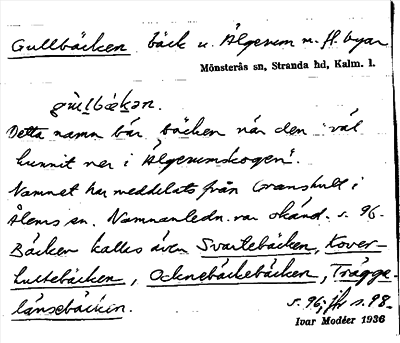 Gullbäcken bäck u. Älgerum m. fl. byar
Mönsterås sn, Stranda hd, Kalm. l.
gùlbækan.
Detta namn bär bäcken när den "väl
hunnit ner i Älgerumskogen".
Namnet har meddelats från Granshult i
Ålems sn. Namnanledn. var okänd. s. 96-
Bäcken kallas även Svartebäcken, Kover-
hultebäcken, Ocknebäckebäcken, Trägge-
länsebäcken.
s. 96; jfr s. 98.
Ivar Modéer 1936